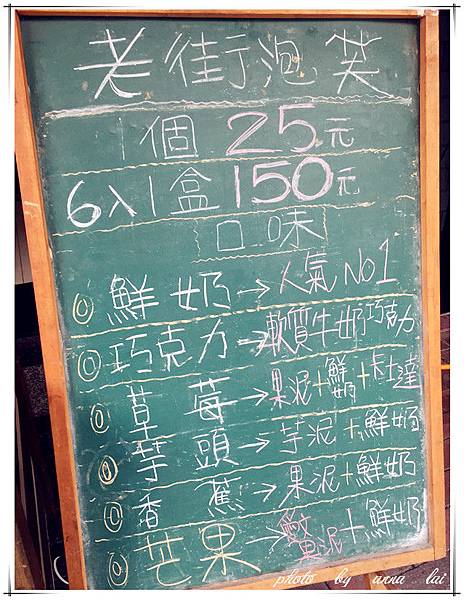 老街泡芙
1個 25元
6入1盒150元
口味
◎鮮奶→人氣NO1
◎巧克力→軟質牛奶巧克力
◎草莓→果泥+鮮奶+卡士達
◎芋頭→芋泥+鮮奶
◎香蕉→果泥+鮮奶
◎芒果→果泥+鮮奶
photo by anna lai